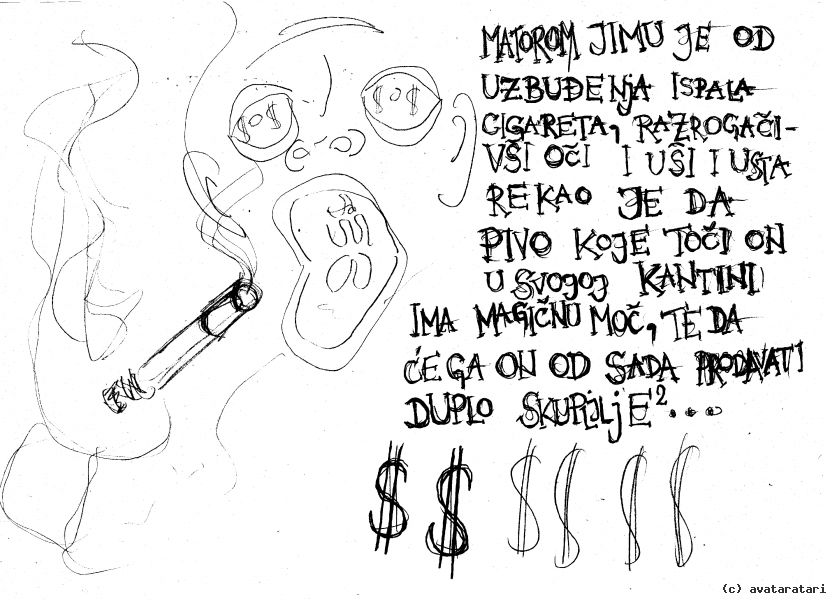 MATOROM JIMU JE OD
UZBUĐENJA ISPALA
CIGARETA, RAZROGAČI-
VŠI OČI I UŠI I USTA
REKAO JE DA
PIVO KOJE TOČI ON
U SVOJOJ KANTINI
IMA MAGIČNU MOČ, TE DA
ĆE GA ON OD SADA PRODAVATI
DUPLO SKUPLJE²...
$ $ $ $ $ $
(c) avataratari